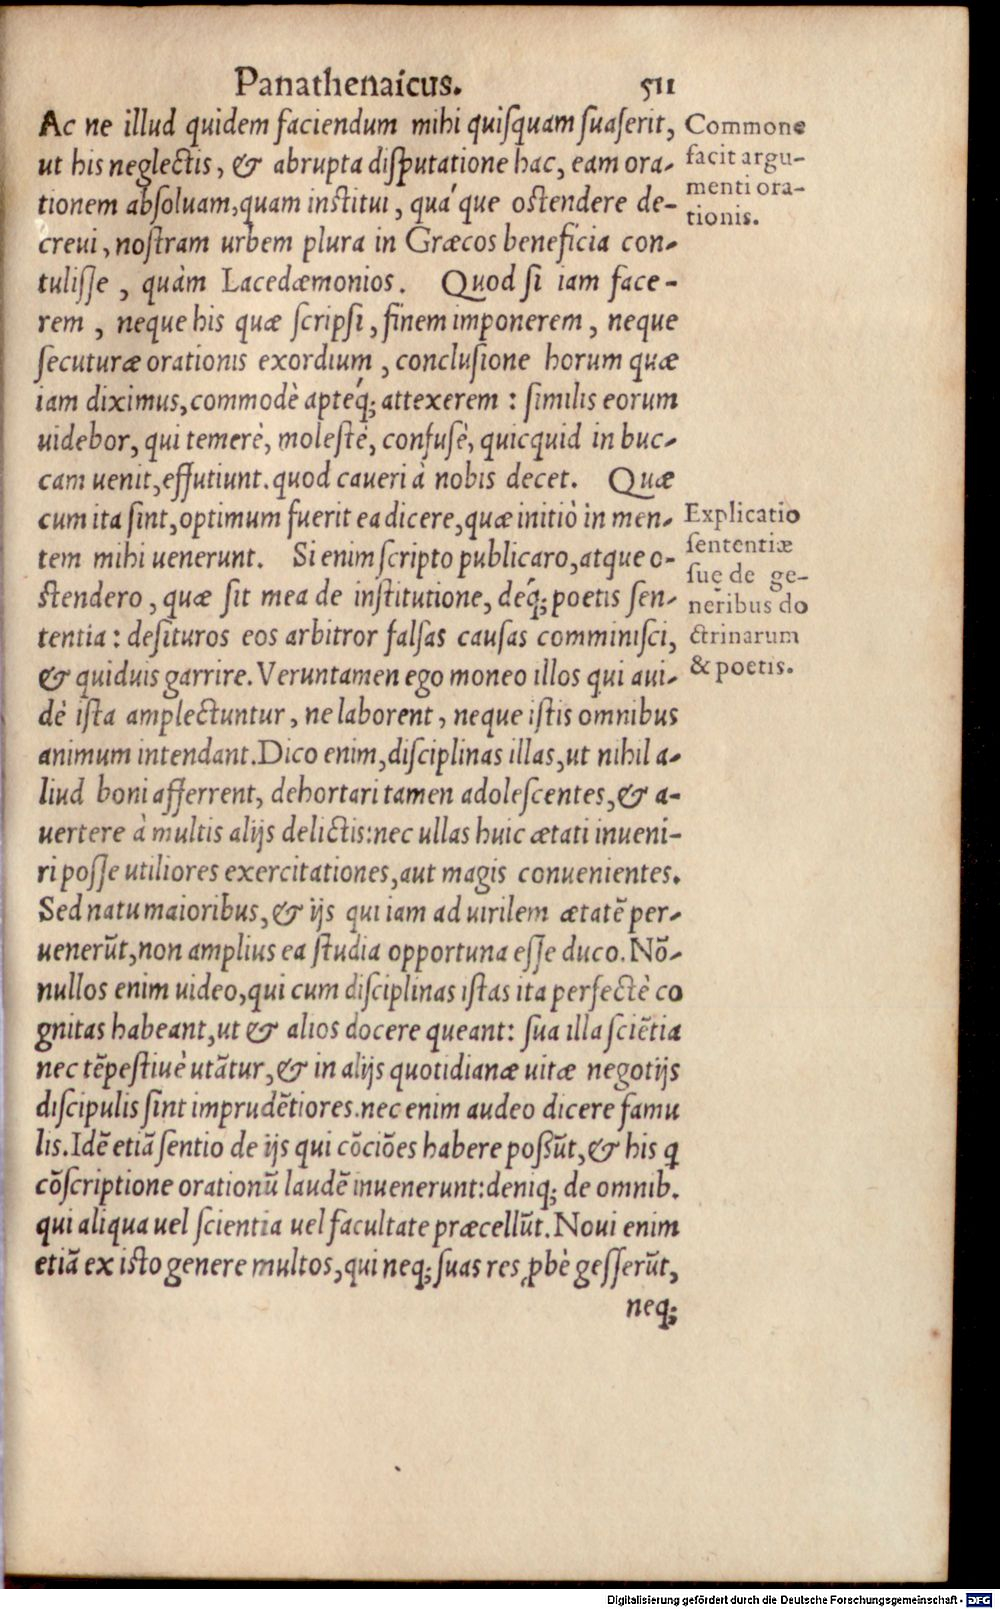 Panathenaicus. 511
Ac ne illud quidem faciendum mihi quiſquam ſuaſerit,
ut his neglectis, & abrupta diſputatione hac, eam ora-
tionem abſoluam, quam institui, quá que ostendere de-
creui, noſtram urbem plura in Græcos beneficia con-
tuliſſe, quàm Lacedæmonios. Quod ſi iam face-
rem, neque his quæ ſcripſi, finem imponerem, neque
ſecuturæ orationis exordium, concluſione horum quæ
iam diximus, commodè apteq́; attexerem : ſimilis eorum
uidebor, qui temerè, moleſtè, confuſè, quicquid in buc-
cam uenit, effutiunt. quod caueri à nobis decet. Quæ
cum ita ſint, optimum fuerit ea dicere, quæ initiò in men-
tem mihi uenerunt. Si enim ſcripto publicaro, atque o-
ſtendero, quæ ſit mea de inſtitutione, deq́; poetis ſen-
tentia : deſituros eos arbitror falſas cauſas comminiſci,
& quiduis garrire. Veruntamen ego moneo illos qui aui-
dè iſta amplectuntur, ne laborent, neque iſtis omnibus
animum intendant. Dico enim, diſciplinas illas, ut nihil a-
liud boni afferrent, dehortari tamen adoleſcentes, & a-
uertere à multis alijs delictis: nec ullas huic ætati inueni-
ri poſſe utiliores exercitationes, aut magis conuenientes.
Sed natu maioribus, & ijs qui iam ad uirilem ætatē per-
uenerūt, non amplius ea ſtudia opportuna eſſe duco. Nō-
nullos enim uideo, qui cum diſciplinas iſtas ita perfectè co
gnitas habeant, ut & alios docere queant: ſua illa ſciētia
nec tēpeſtiuè utātur, & in alijs quotidianæ uitæ negotijs
diſcipulis ſint imprudētiores. nec enim audeo dicere famu
lis. Idē etiā ſentio de ijs qui cōciōes habere poſſūt, & his q
cōſcriptione orationū laudē inuenerunt: deniq; de omnib.
qui aliqua uel ſcientia uel facultate præcellūt. Noui enim
etiā ex iſto genere multos, qui neq; ſuas res ꝓbè geſſerūt,
neq;
Commone
facit argu-
menti ora-
tionis.
Explicatio
ſententiæ
ſuę de ge-
neribus do
ctrinarum
& poetis.
Digitalisierung gefördert durch die Deutsche Forschungsgemeinschaft - DFG